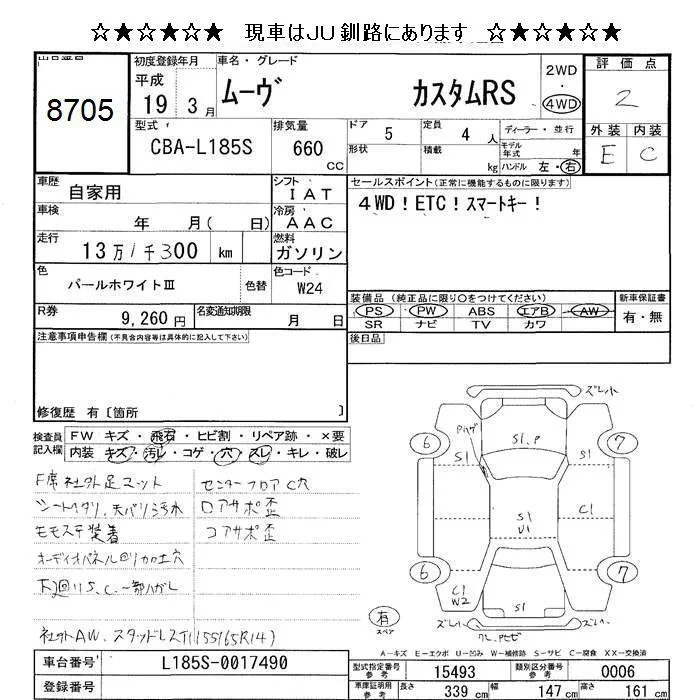 ☆★☆★☆★ 現車はJU釧路にあります ☆★☆★☆★
出品番号 8705
初度登録年月 平成 19 3月
車名・グレード ムーヴ カスタムRS
2WD・4WD
評価点 2
型式 CBA-L185S
排気量 660 CC
ドア 5
定員 4 人
形状
積載 kg
ディーラー・並行
モデル年式 年
ハンドル 左・右
外装 内装
E C
車歴 自家用
シフト IAT
車検 年 月( 日)
冷房 AAC
走行 13万1千300 km
燃料 ガソリン
セールスポイント(正常に機能するものに限ります)
4WD!ETC!スマートキー!
色 パールホワイトⅢ 色替
色コード W24
R券 9,260円
名変通知期限 月 日
装備品(純正品に限り○をつけてください)
PS・PW・ABS・エアB・AW
SR ナビ TV カワ
新車保証書 有・無
注意事項申告欄(不具合内容等は具体的に記入して下さい)
後日品
修復歴 有〔箇所 〕
検査員記入欄
FW キズ・飛石・ヒビ割・リペア跡・×要
内装 キズ・汚レ・コゲ・穴・スレ・キレ・破レ
F席社外足マット
センターフロアC穴
シートスリ、天バリ汚水
ロアサポ歪
モモステ装着
コアサポ歪
オーディオパネル回リカロ工穴
下廻リS.C.一部ハガレ
社外AW、スタッドレスT(155/65R14)
ズレ小
Pハゲ
S1.P
6
7
S1
S1
S1
U1
C1
6
7
C1
W2
S1
有
スペア
ズレ小
ズレ小
A-キズ E-エクボ U-凹み W-補修跡 S-サビ C-腐食 XX-交換済
車台番号 L185S-0017490
登録番号
型式指定番号 参考 15493
類別区分番号 参考 0006
車庫証明用 参考 長さ 339 cm 幅 147 cm 高さ 161 cm